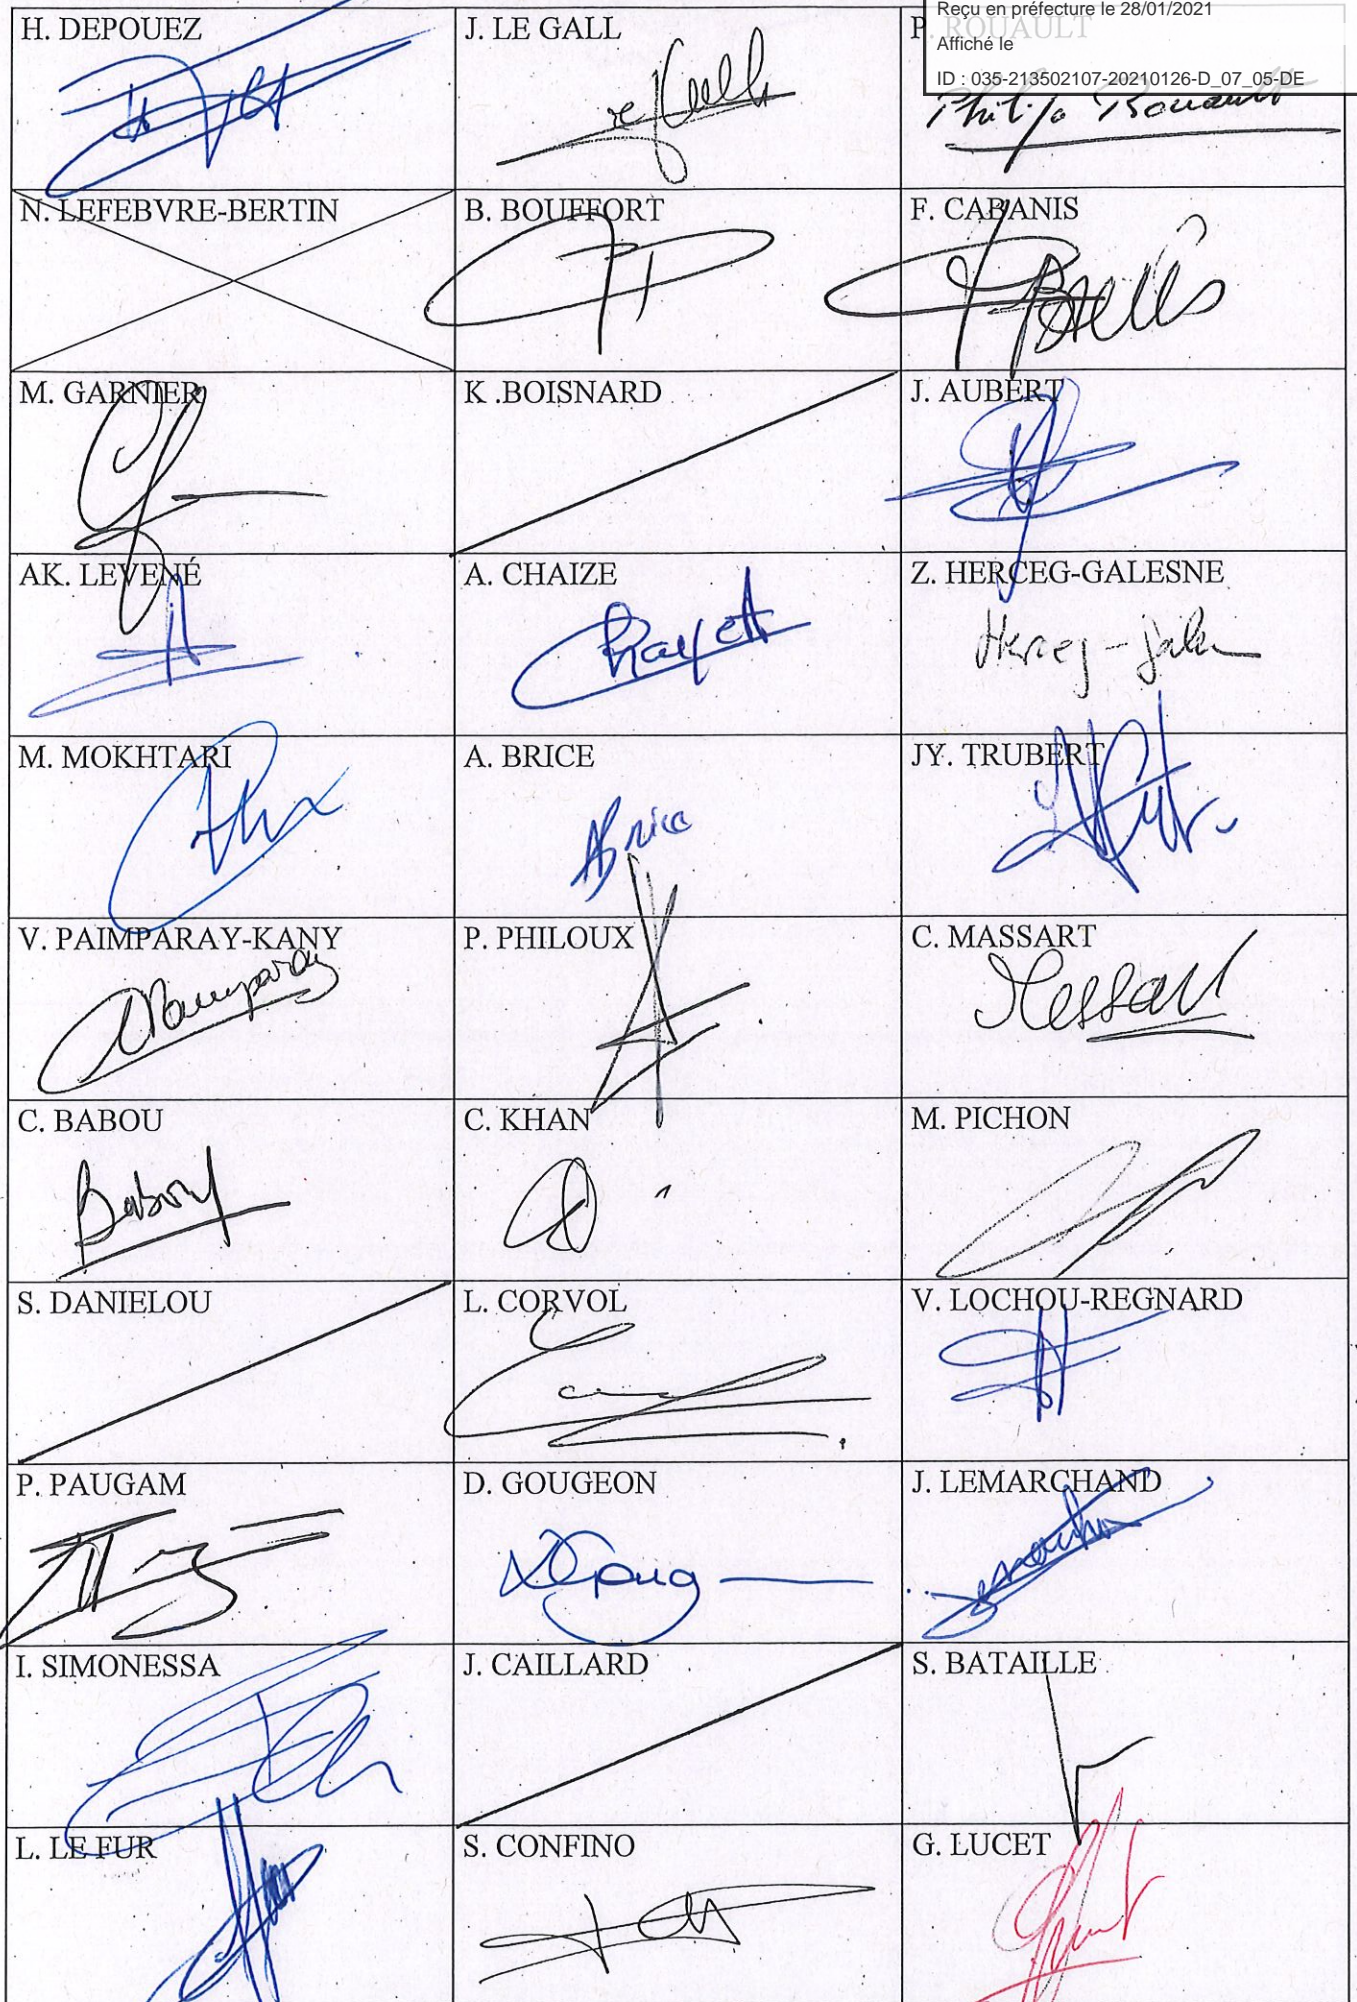 Reçu en préfecture le 28/01/2021
Affiché le
ID : 035-213502107-20210126-D_07_05-DE
H. DEPOUEZ
J. LE GALL
P. ROUAULT
Philippe Rouault
N. LEFEBVRE-BERTIN
B. BOUFFORT
F. CABANIS
M. GARNIER
K .BOISNARD
J. AUBERT
AK. LEVENÉ
A. CHAIZE
Z. HERCEG-GALESNE
Herceg-Gale
M. MOKHTARI
A. BRICE
ABrice
JY. TRUBERT
V. PAIMPARAY-KANY
P. PHILOUX
C. MASSART
Massart
C. BABOU
Babou
C. KHAN
M. PICHON
S. DANIELOU
L. CORVOL
V. LOCHOU-REGNARD
P. PAUGAM
D. GOUGEON
J. LEMARCHAND
I. SIMONESSA
J. CAILLARD
S. BATAILLE
L. LE FUR
S. CONFINO
G. LUCET